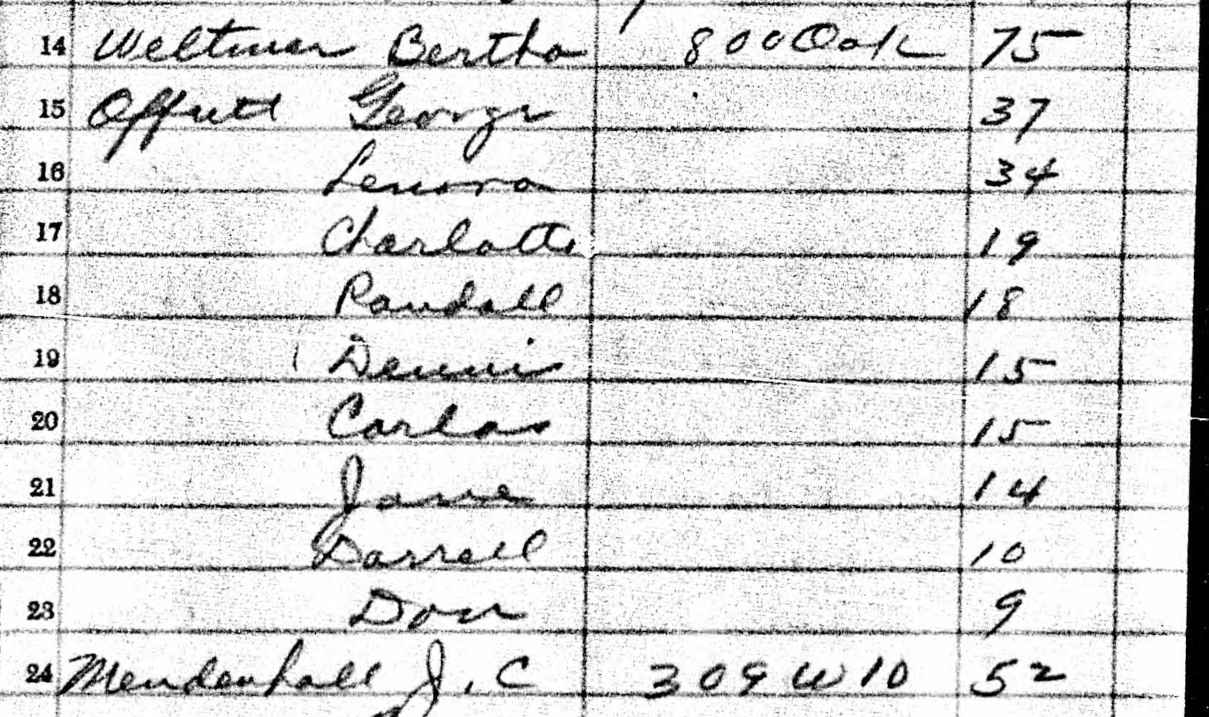 14 Weltmer Bertha 800 Oak 75
15 Offutt George 37
16 Lenora 34
17 Charlotte 19
18 Randall 18
19 Dennis 15
20 Carlas 15
21 Jane 14
22 Darrell 10
23 Don 9
24 Mendenhall J. C 309 W 10 52